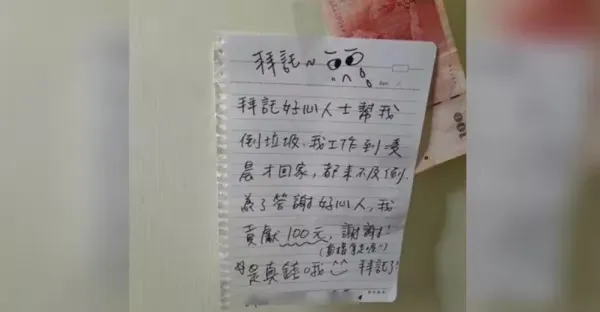 拜託~
拜託好心人士幫我
倒垃圾,我工作到凌
晨才回家,都來不及倒.
為了答謝好心人,我
貢獻100元,謝謝!
(直接拿走喔!)
是真錢哦^^ 拜託了!
100